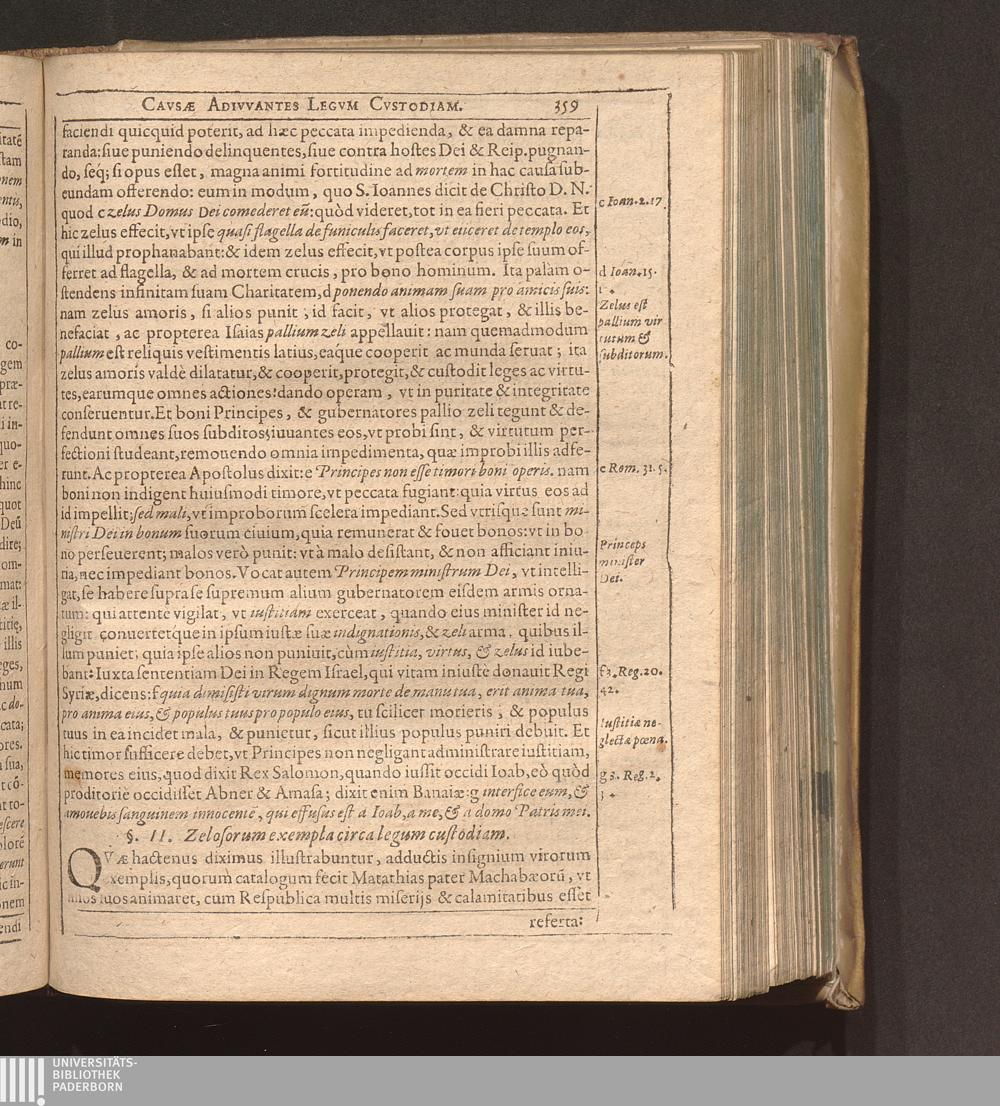 CAVSÆ ADIVVANTES LEGVM CVSTODIAM. 359
faciendi quicquid poterit, ad hæc peccata impedienda, & ea damna repa-
randa: siue puniendo delinquentes, siue contra hostes Dei & Reip. pugnan-
do, seq; si opus esset, magna animi fortitudine ad mortem in hac causa sub-
eundam offerendo: eum in modum, quo S. Ioannes dicit de Christo D. N.
quod c zelus Domus Dei comederet eũ: quòd videret, tot in ea fieri peccata. Et
hic zelus effecit, vt ipse quasi flagella de funiculis faceret, vt eiiceret de templo eos,
qui illud prophanabant: & idem zelus effecit, vt postea corpus ipse suum of-
ferret ad flagella, & ad mortem crucis, pro bono hominum. Ita palàm o-
stendens infinitam suam Charitatem, d ponendo animam suam pro amicis suis:
nam zelus amoris, si alios punit, id facit, vt alios protegat, & illis be-
nefaciat, ac propterea Isaias pallium zeli appellauit: nam quemadmodum
pallium est reliquis vestimentis latius, eaq́ue cooperit ac munda seruat; ita
zelus amoris valdè dilatatur, & cooperit, protegit, & custodit leges ac virtu-
tes, earumque omnes actiones: dando operam, vt in puritate & integritate
conseruentur. Et boni Principes, & gubernatores pallio zeli tegunt & de-
fendunt omnes suos subditos; iuuantes eos, vt probi sint, & virtutum per-
fectioni studeant, remouendo omnia impedimenta, quæ improbi illis adfe-
runt. Ac propterea Apostolus dixit: e Principes non esse timori boni operis. nam
boni non indigent huiusmodi timore, vt peccata fugiant: quia virtus eos ad
id impellit; sed mali, vt improborum scelera impediant. Sed vtrisque sunt mi-
nistri Dei in bonum suorum ciuium, quia remunerat & fouet bonos: vt in bo
no perseuerent; malos verò punit: vt à malo desistant, & non afficiant iniu-
ria, nec impediant bonos. Vocat autem Principem ministrum Dei, vt intelli-
gat, se habere supra se supremum alium gubernatorem eisdem armis orna-
tum: qui attente vigilat, vt iustitiam exerceat, quando eius minister id ne-
gligit conuertetque in ipsum iustæ suæ indignationis, & zeli arma. quibus il-
lum puniet; quia ipse alios non puniuit, cùm iustitia, virtus, & zelus id iube-
bant: Iuxta sententiam Dei in Regem Israel, qui vitam iniustè donauit Regi
Syriæ, dicens: f quia dimisisti virum dignum morte de manu tua, erit anima tua,
pro anima eius, & populus tuus pro populo eius, tu scilicet morieris, & populus
tuus in ea incidet mala, & punietur, sicut illius populus puniri debuit. Et
hic timor sufficere debet, vt Principes non negligant administrare iustitiam,
memores eius, quod dixit Rex Salomon, quando iussit occidi Ioab, eò quòd
proditoriè occidisset Abner & Amasa; dixit enim Banaiæ: g interfice eum, &
amouebis sanguinem innocentẽ, qui effusus est a Ioab, a me, & a domo Patris mei.
§. II. Zelosorum exempla circa legum custodiam.
QVæ hactenus diximus illustrabuntur, adductis insignium virorum
exemplis, quorum catalogum fecit Matathias pater Machabæorũ, vt
filios suos animaret, cum Respublica multis miserijs & calamitatibus esset
referta:
c Ioan. 2. 17.
d Ioan. 15.
1.
Zelus est
pallium vir
tutum &
subditorum.
e Rom. 31. 5.
Princeps
minister
Dei.
f 3. Reg. 20.
42.
Iustitiæ ne-
glectæ pœna.
g 3. Reg. 2.
3.
UNIVERSITÄTS-
BIBLIOTHEK
PADERBORN